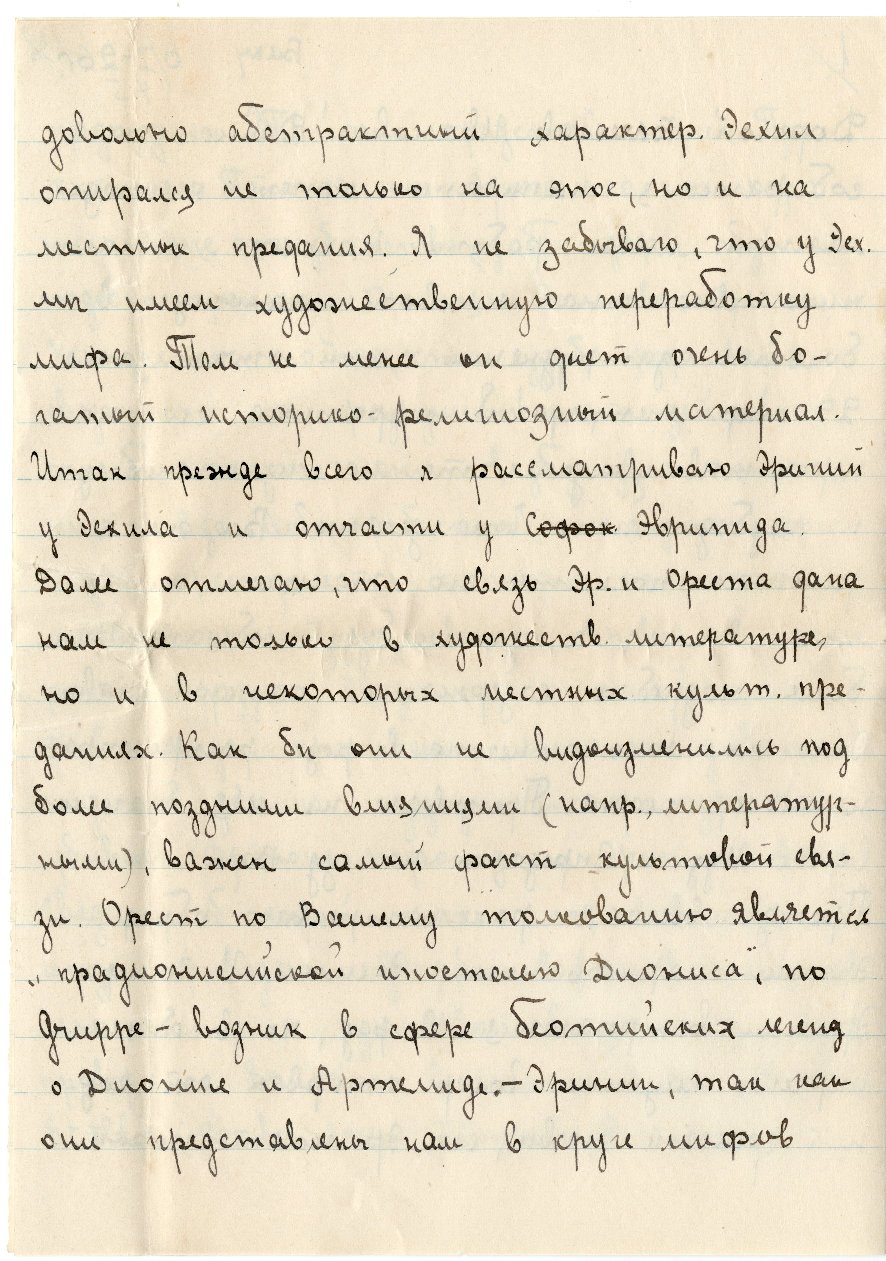 довольно абстрактный характер. Эсхил
опирался не только на эпос, но и на
местные предания. Я не забываю, что у Эсх.
мы имеем художественную переработку
мифа. Тем не менее он дает очень бо-
гатый историко-религиозный материал.
Итак прежде всего я рассматриваю Эриний
у Эсхила и отчасти у Софок Эврипида.
Далее отмечаю, что связь Эр. и Ореста дана
нам не только в художеств. литературе,
но и в некоторых местных культ. пре-
даниях. Как бы они не видоизменились под
более поздними влияниями (напр., литератур-
ными), важен самый факт культовой свя-
зи. Орест по Вашему толкованию является
„прадионисийской ипостасью Диониса", по
Gruppe – возник в сфере беотийских легенд
о Дионисе и Артемиде. – Эринии, так как
они представлены нам в круге мифов